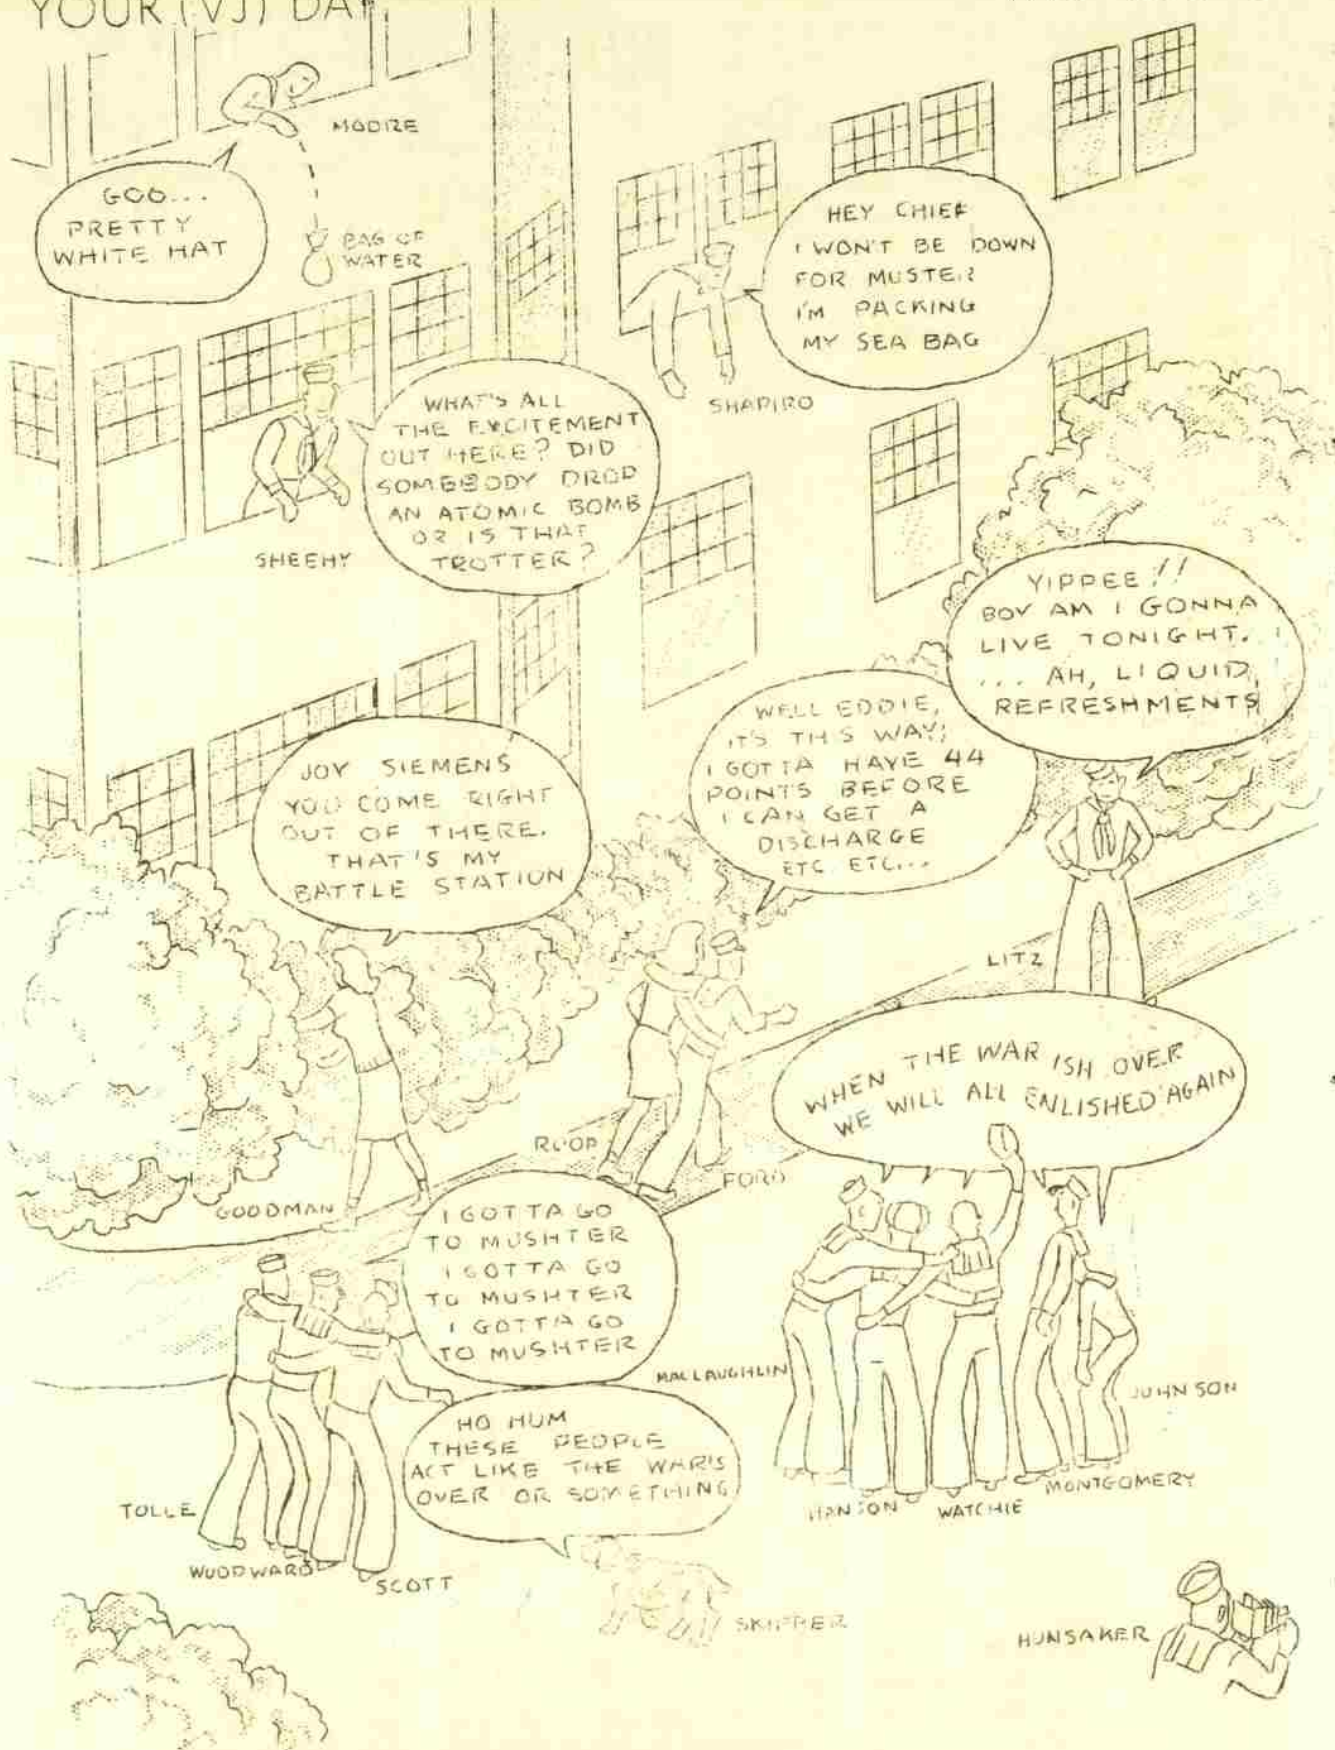 YOUR (VJ) DAY
MOORE
GOO...
PRETTY
WHITE HAT
BAG OF
WATER
HEY CHIEF
I WON'T BE DOWN
FOR MUSTER
I'M PACKING
MY SEA BAG
SHAPIRO
WHAT'S ALL
THE EXCITEMENT
OUT HERE? DID
SOMEBODY DROP
AN ATOMIC BOMB
OR IS THAT
TROTTER?
SHEEHY
YIPPEE!!
BOY AM I GONNA
LIVE TONIGHT.
... AH, LIQUID
REFRESHMENTS
LITZ
WELL EDDIE,
IT'S THIS WAY;
I GOTTA HAVE 44
POINTS BEFORE
I CAN GET A
DISCHARGE
ETC. ETC...
JOY SIEMENS
YOU COME RIGHT
OUT OF THERE.
THAT'S MY
BATTLE STATION
GOODMAN
ROOP
FORD
WHEN THE WAR ISH OVER
WE WILL ALL ENLISHED AGAIN
I GOTTA GO
TO MUSHTER
I GOTTA GO
TO MUSHTER
I GOTTA GO
TO MUSHTER
MACLAUGHLIN
JOHNSON
HANSON
WATCHIE
MONTGOMERY
HO HUM
THESE PEOPLE
ACT LIKE THE WAR'S
OVER OR SOMETHING
TOLLE
WOODWARD
SCOTT
SKIPPER
HUNSAKER